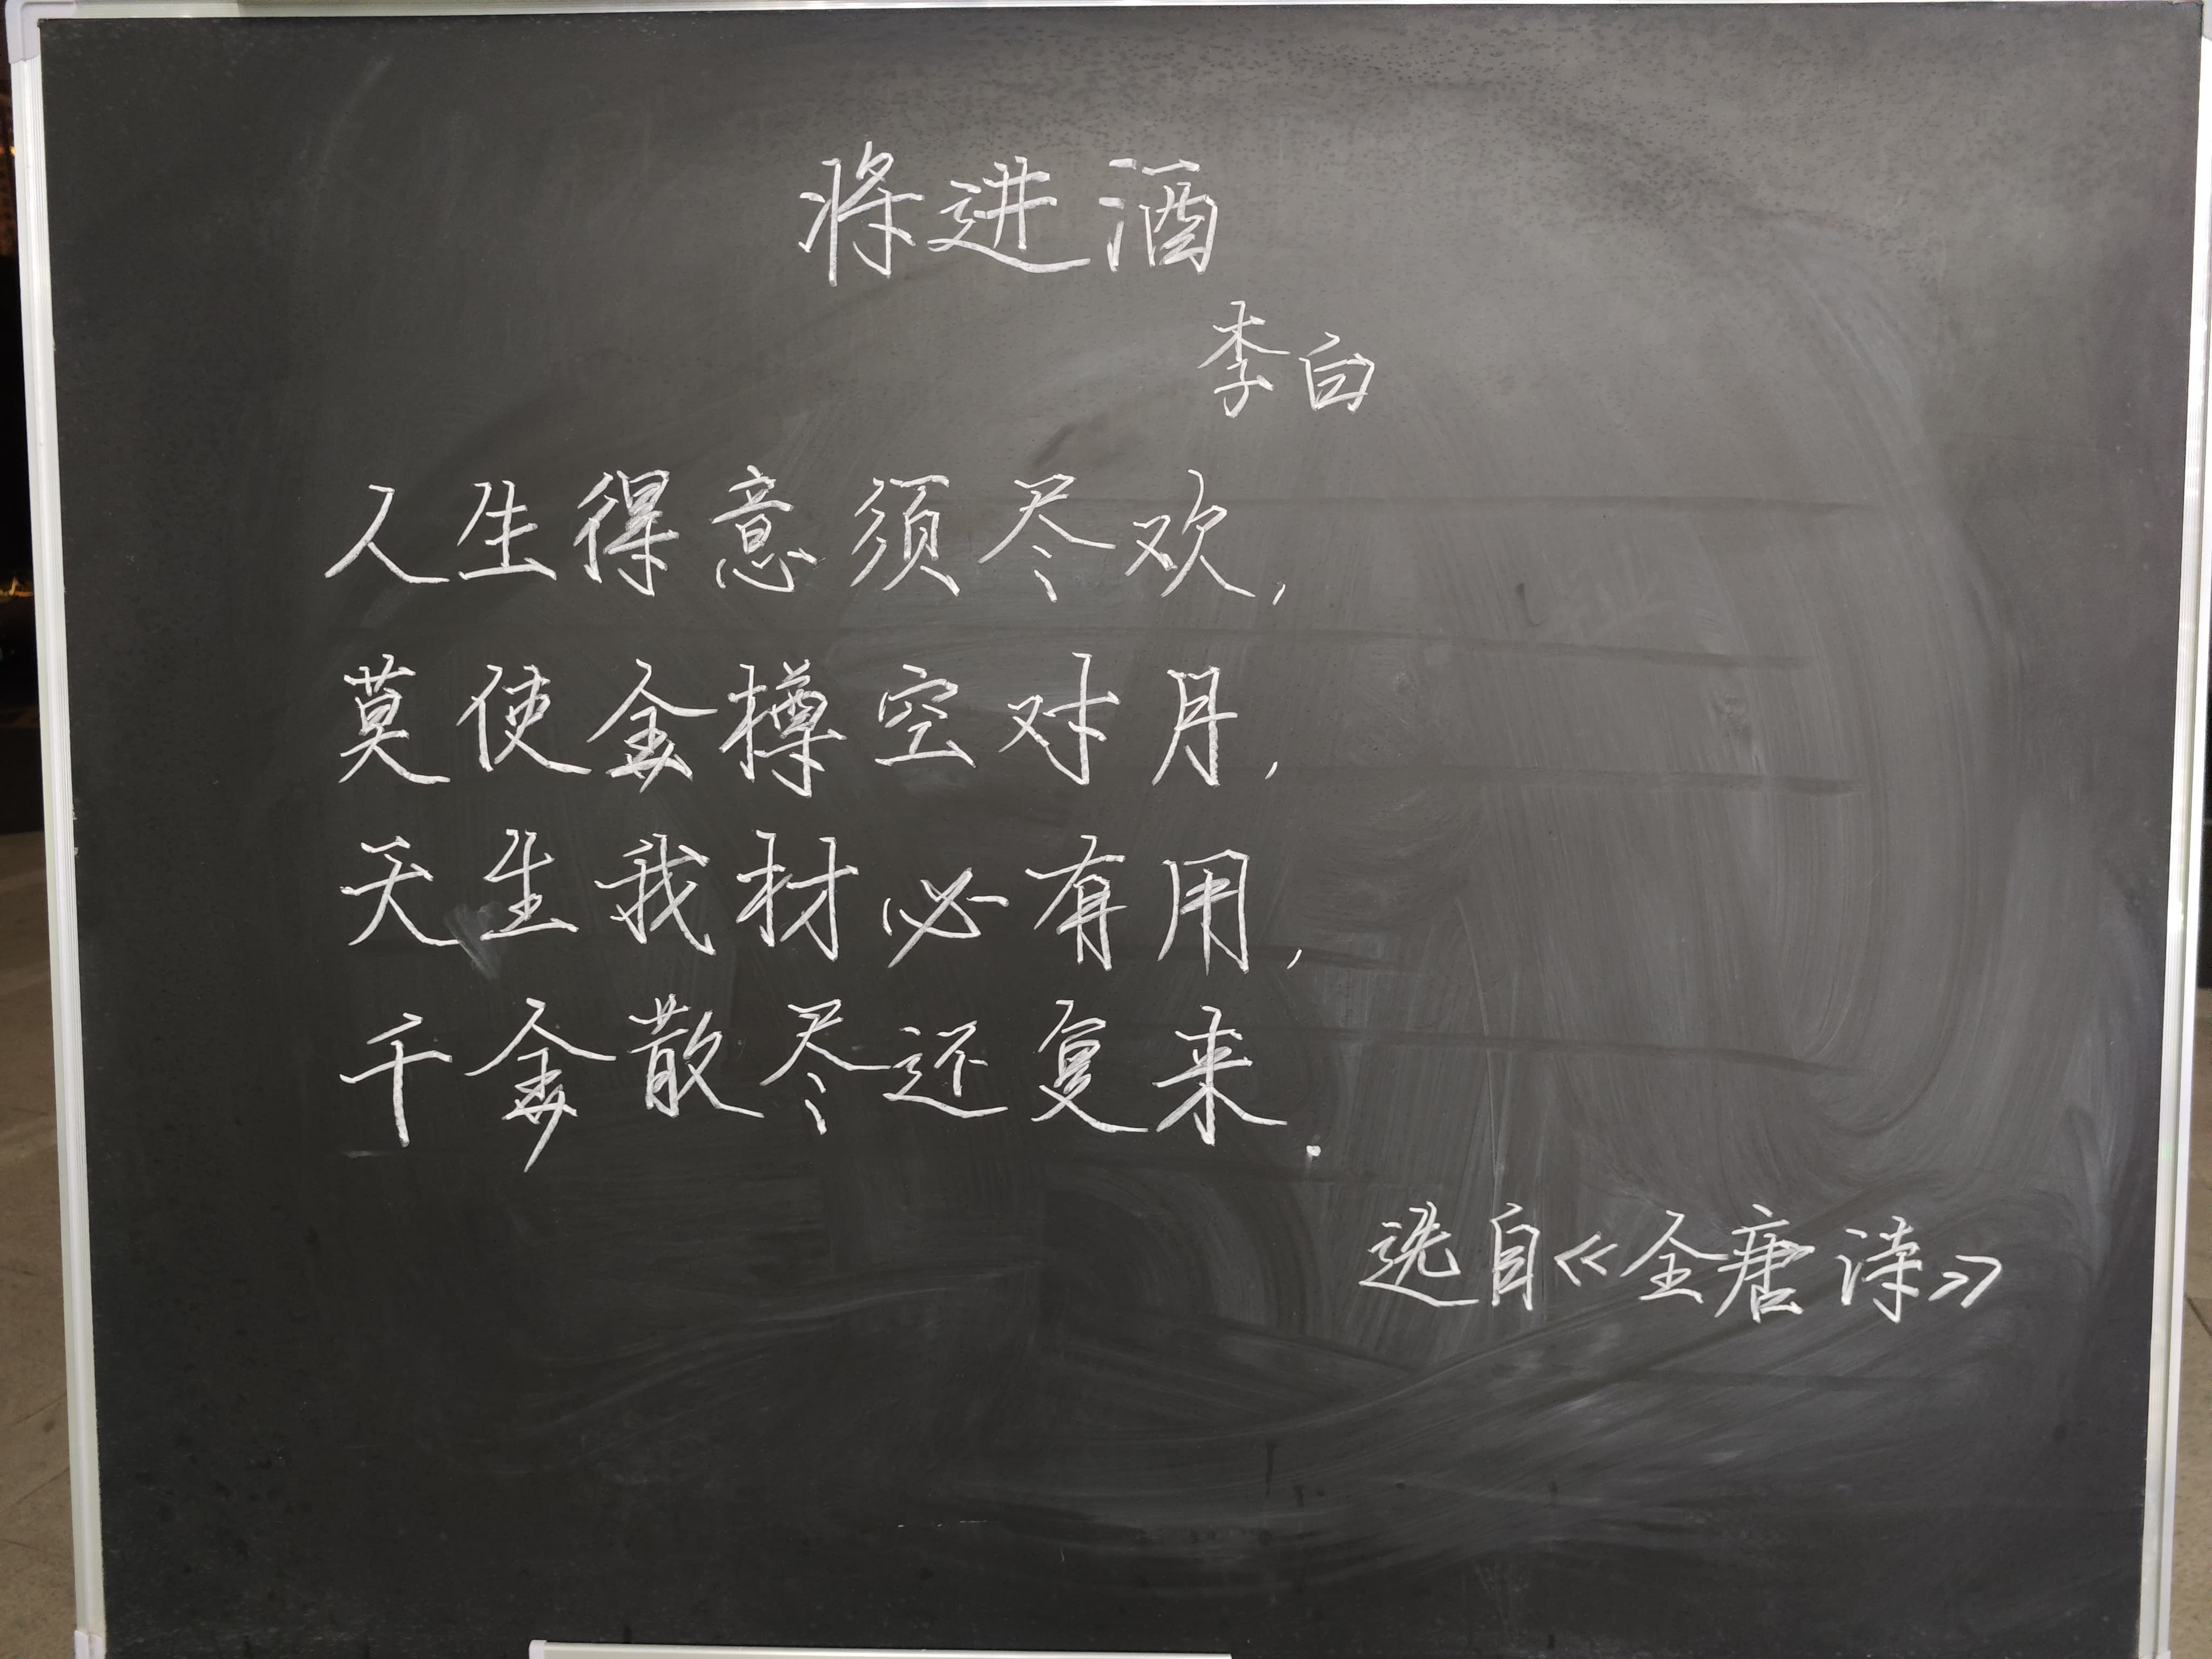 将进酒
李白
人生得意须尽欢，
莫使金樽空对月，
天生我材必有用，
千金散尽还复来.
选自《全唐诗》